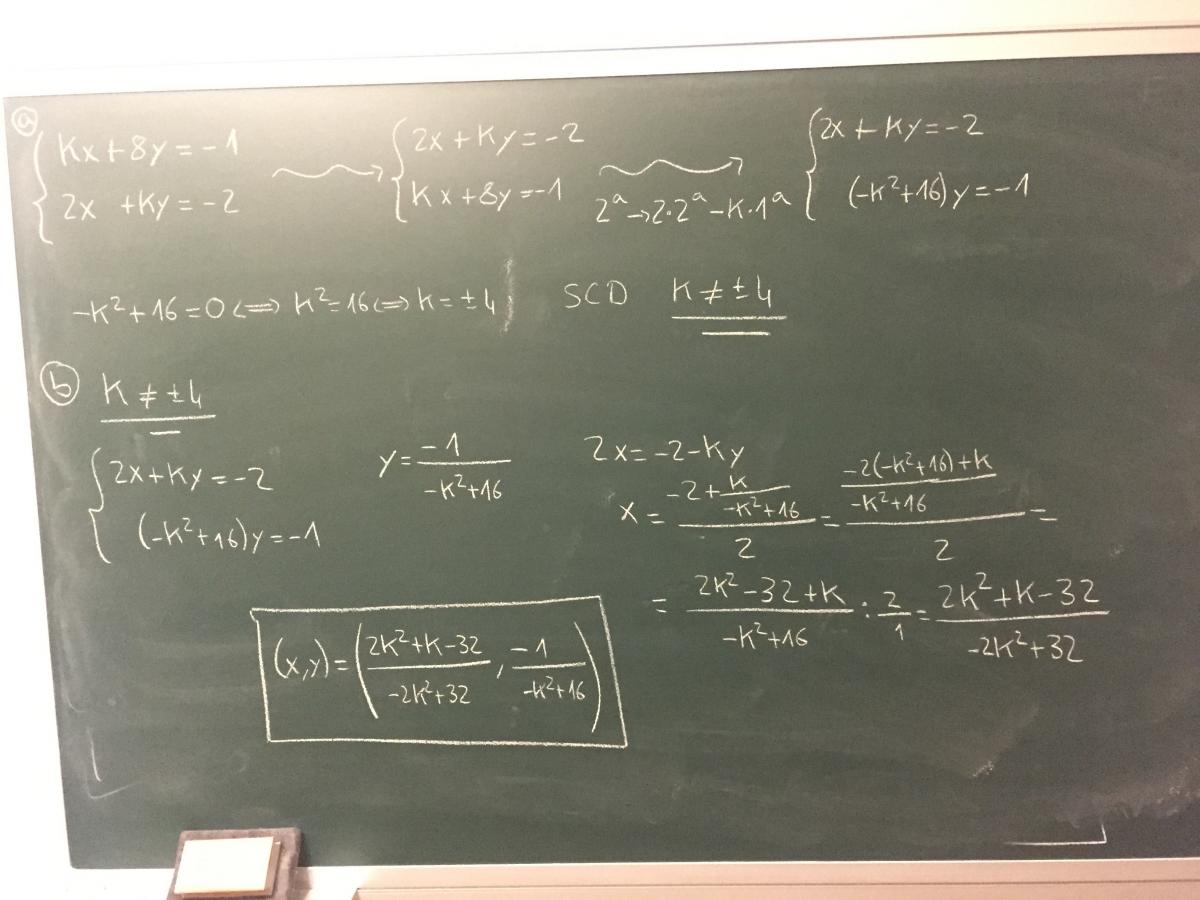 ⓐ
Kx+8y=-1
2x +Ky=-2
2x+Ky=-2
Kx+8y=-1
2ª→2·2ª-K·1ª
2x+Ky=-2
(-K²+16)y=-1
-K²+16=0<=>K²=16<=>K=±4 SCD K≠±4
ⓑ K≠±4
2x+Ky=-2
(-K²+16)y=-1
y=-1/(-K²+16)
2x=-2-Ky
x=(-2+K/(-K²+16))/2=((-2(-K²+16)+K)/(-K²+16))/2=
=(2K²-32+K)/(-K²+16):2/1=(2K²+K-32)/(-2K²+32)
(x,y)=((2K²+K-32)/(-2K²+32),-1/(-K²+16))